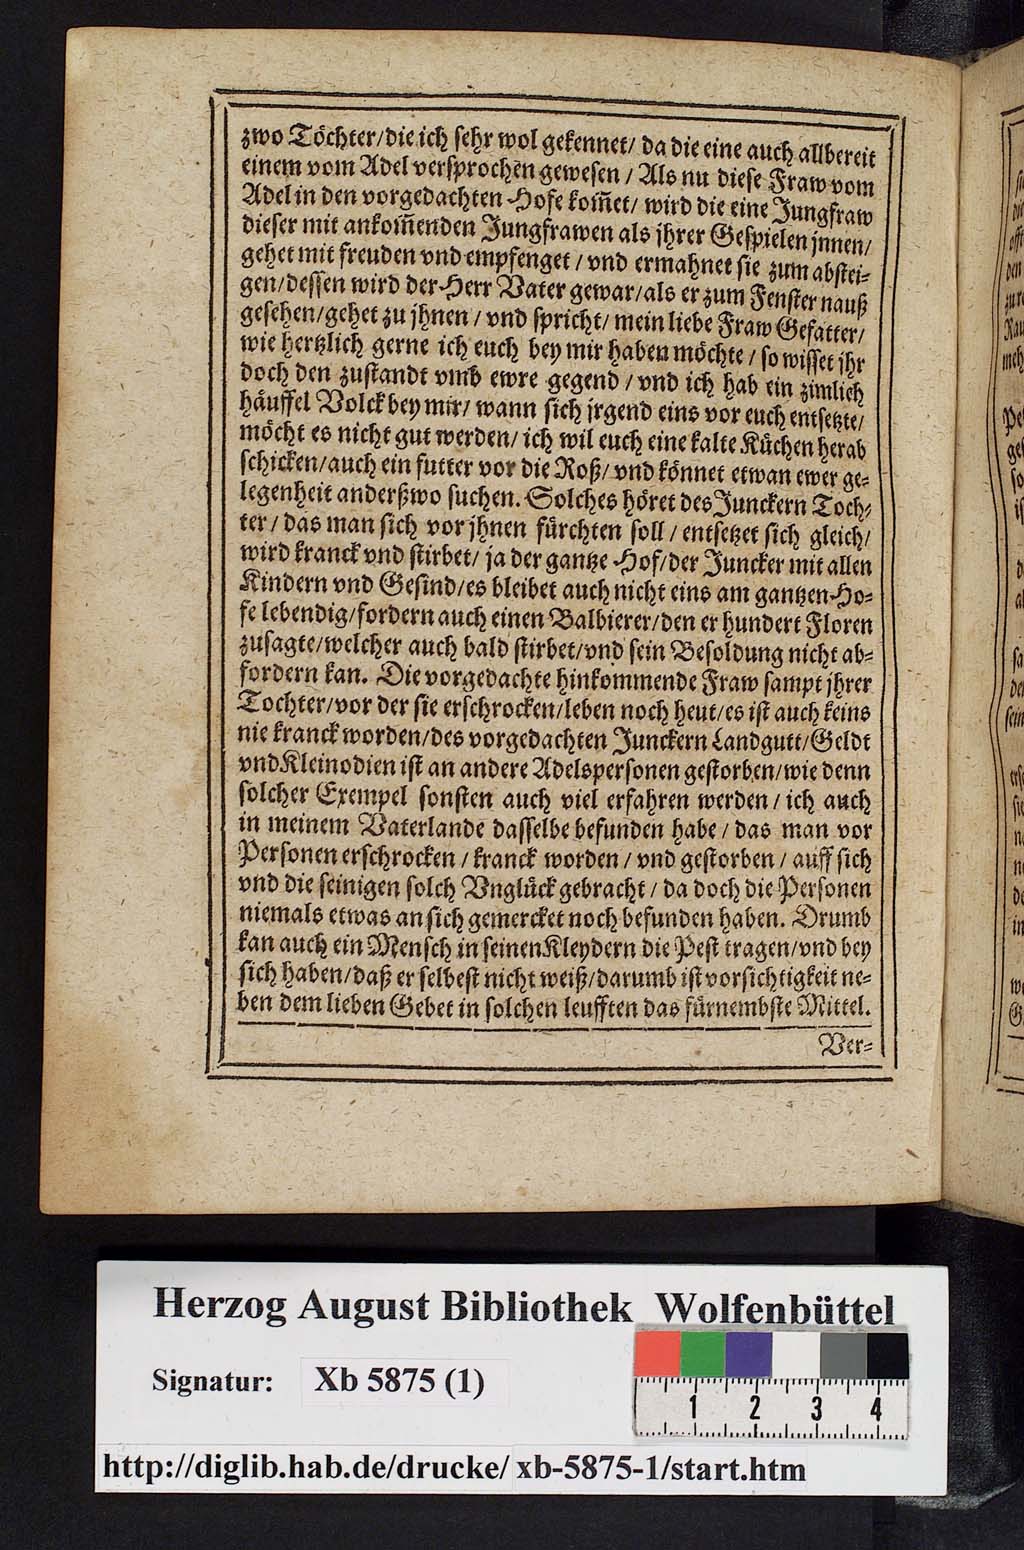 zwo Töchter/die ich sehr wol gekennet/ da die eine auch allbereit
einem vom Adel versprochen gewesen / Als nu diese Fraw vom
Adel in den vorgedachten Hofe kom̃et/ wird die eine Jungfraw
dieser mit ankom̃enden Jungfrawen als jhrer Gespielen jnnen/
gehet mit freuden vnd empfenget / vnd ermahnet sie zum abstei-
gen/dessen wird der Herr Vater gewar/als er zum Fenster nauß
gesehen/gehet zu jhnen / vnd spricht/ mein liebe Fraw Gefatter/
wie hertzlich gerne ich euch bey mir haben möchte / so wisset jhr
doch den zustandt vmb ewre gegend / vnd ich hab ein zimlich
häuffel Volck bey mir/ wann sich jrgend eins vor euch entsetzte/
möcht es nicht gut werden/ ich wil euch eine kalte Küchen herab
schicken/auch ein futter vor die Roß/ vnd könnet etwan ewer ge-
legenheit anderßwo suchen. Solches höret des Junckern Toch-
ter / das man sich vor jhnen fürchten soll / entsetzet sich gleich/
wird kranck vnd stirbet/ ja der gantze Hof/der Juncker mit allen
Kindern vnd Gesind/es bleibet auch nicht eins am gantzen Ho-
fe lebendig/fordern auch einen Balbierer/den er hundert Floren
zusagte/welcher auch bald stirbet/vnd sein Besoldung nicht ab-
fordern kan. Die vorgedachte hinkommende Fraw sampt jhrer
Tochter/vor der sie erschrocken/leben noch heut/es ist auch keins
nie kranck worden/des vorgedachten Junckern Landgutt/Geldt
vnd Kleinodien ist an andere Adelspersonen gestorben/wie denn
solcher Exempel sonsten auch viel erfahren werden / ich auch
in meinem Vaterlande dasselbe befunden habe / das man vor
Personen erschrocken / kranck worden / vnd gestorben / auff sich
vnd die seinigen solch Vnglück gebracht / da doch die Personen
niemals etwas an sich gemercket noch befunden haben. Drumb
kan auch ein Mensch in seinen Kleydern die Pest tragen/vnd bey
sich haben/daß er selbest nicht weiß/darumb ist vorsichtigkeit ne-
ben dem lieben Gebet in solchen leufften das fürnembste Mittel.
Ver-
Herzog August Bibliothek Wolfenbüttel
Signatur: Xb 5875 (1)
1 2 3 4
http://diglib.hab.de/drucke/ xb-5875-1/start.htm